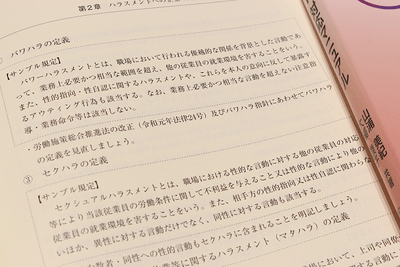 第2章 ハラスメントへの
パワハラの定義
【サンプル規定】
パワーハラスメントとは、職場において行われる優越的な関係を背景とした言動であ
って、業務上必要かつ相当な範囲を超え、他の従業員の就業環境を害することをいう。
また、性的指向・性自認に関するハラスメントや、これらを本人の意向に反して暴露す
るアウティング行為も該当する。なお、業務上必要かつ相当な言動を超えない注意指
導・業務命令等は該当しない。
・労働施策総合推進法の改正（令和元年法律24号）及びパワハラ指針にあわせてパワハラ
の定義を見直しましょう。
③ セクハラの定義
【サンプル規定】
セクシュアルハラスメントとは、職場における性的な言動に対する他の従業員の対応
等により当該従業員の労働条件に関して不利益を与えること又は性的な言動により他の
従業員の就業環境を害することをいう。また、相手方の性的指向又は性自認に関わらな
いほか、異性に対する言動だけでなく、同性に対する言動も該当する。
少数者・同性への性的言動もセクハラに含まれることを明記しましょう。
業等に関するハラスメント（マタハラ）の定義
場において、上司や同僚